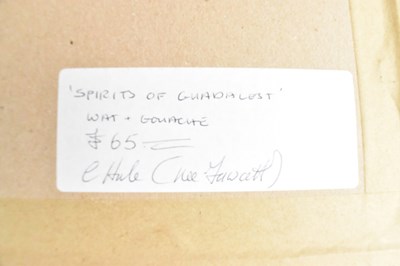 'SPIRITS OF GUADALEST'
WAT + GOUACHE
£65
C Hale (nee Fawcett)